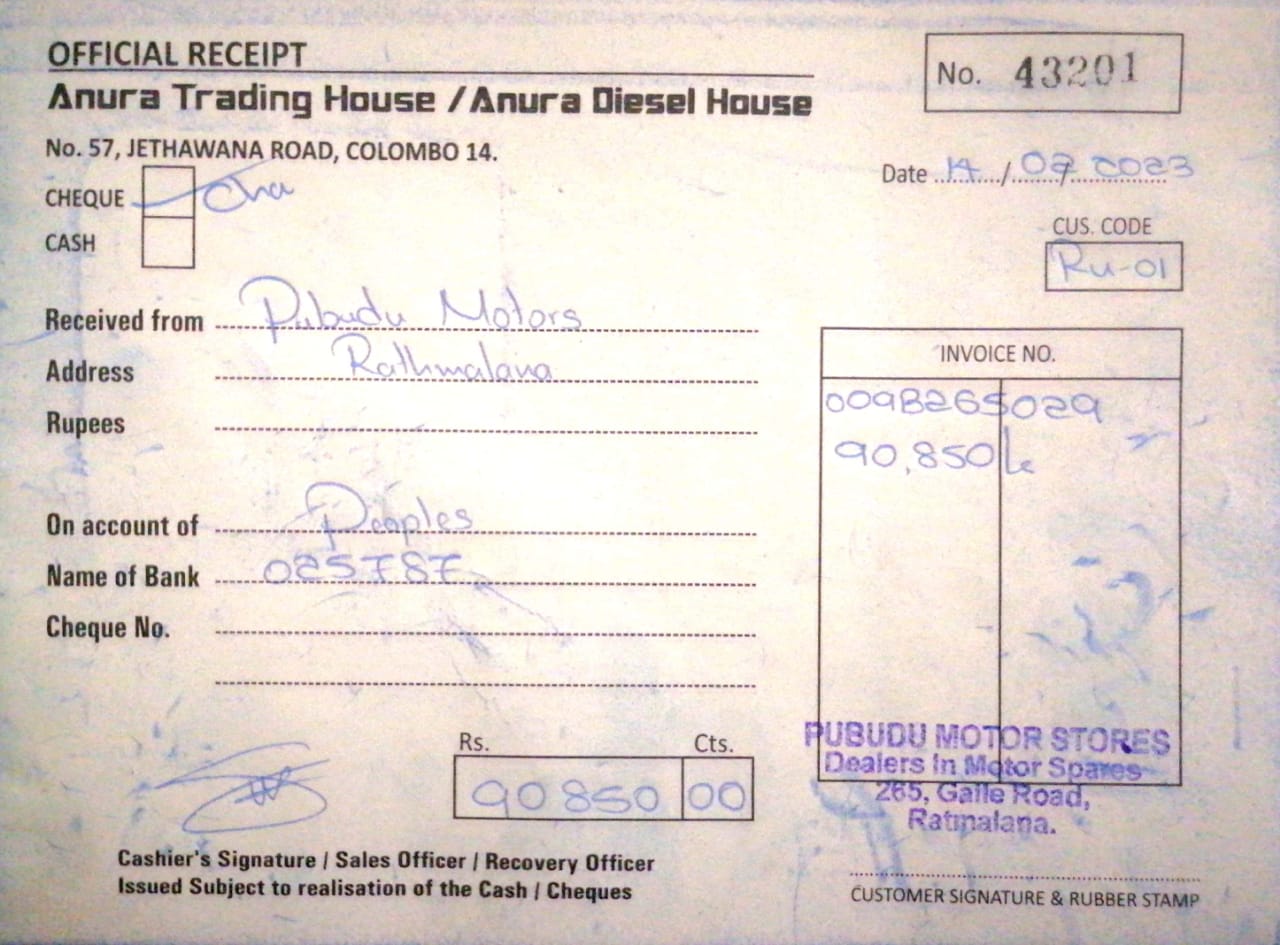 OFFICIAL RECEIPT
No. 43201
Anura Trading House / Anura Diesel House
No. 57, JETHAWANA ROAD, COLOMBO 14.
Date 14/02/2023
CHEQUE
CASH
CUS. CODE
Ru-01
Received from Pubudu Motors
Address Rathmalana
Rupees
INVOICE NO.
009B265029
90,850
On account of Peoples
Name of Bank 025787
Cheque No.
Rs. Cts.
90 850 00
PUBUDU MOTOR STORES
Dealers in Motor Spares
265, Galle Road,
Ratmalana.
Cashier's Signature / Sales Officer / Recovery Officer
Issued Subject to realisation of the Cash / Cheques
CUSTOMER SIGNATURE & RUBBER STAMP